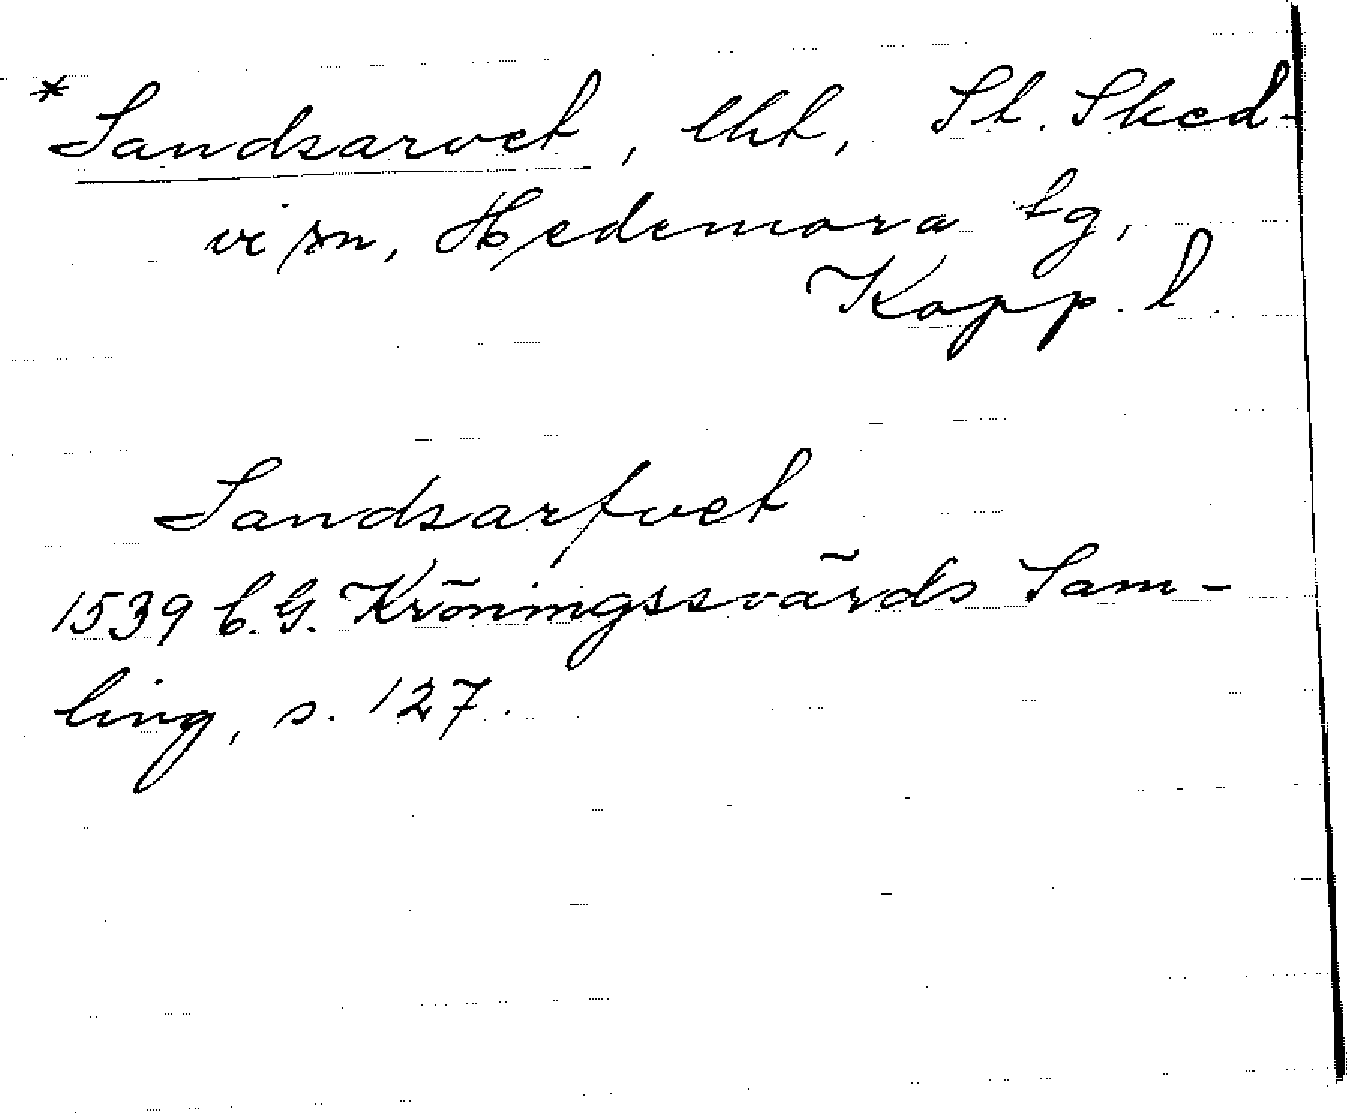 *Sandsarvet, lht, St. Sked-
vi sn, Hedemora tg,
Kopp. l.
Sandsarfvet
1539 C. G. Kröningssvärds Sam-
ling, s. 127.